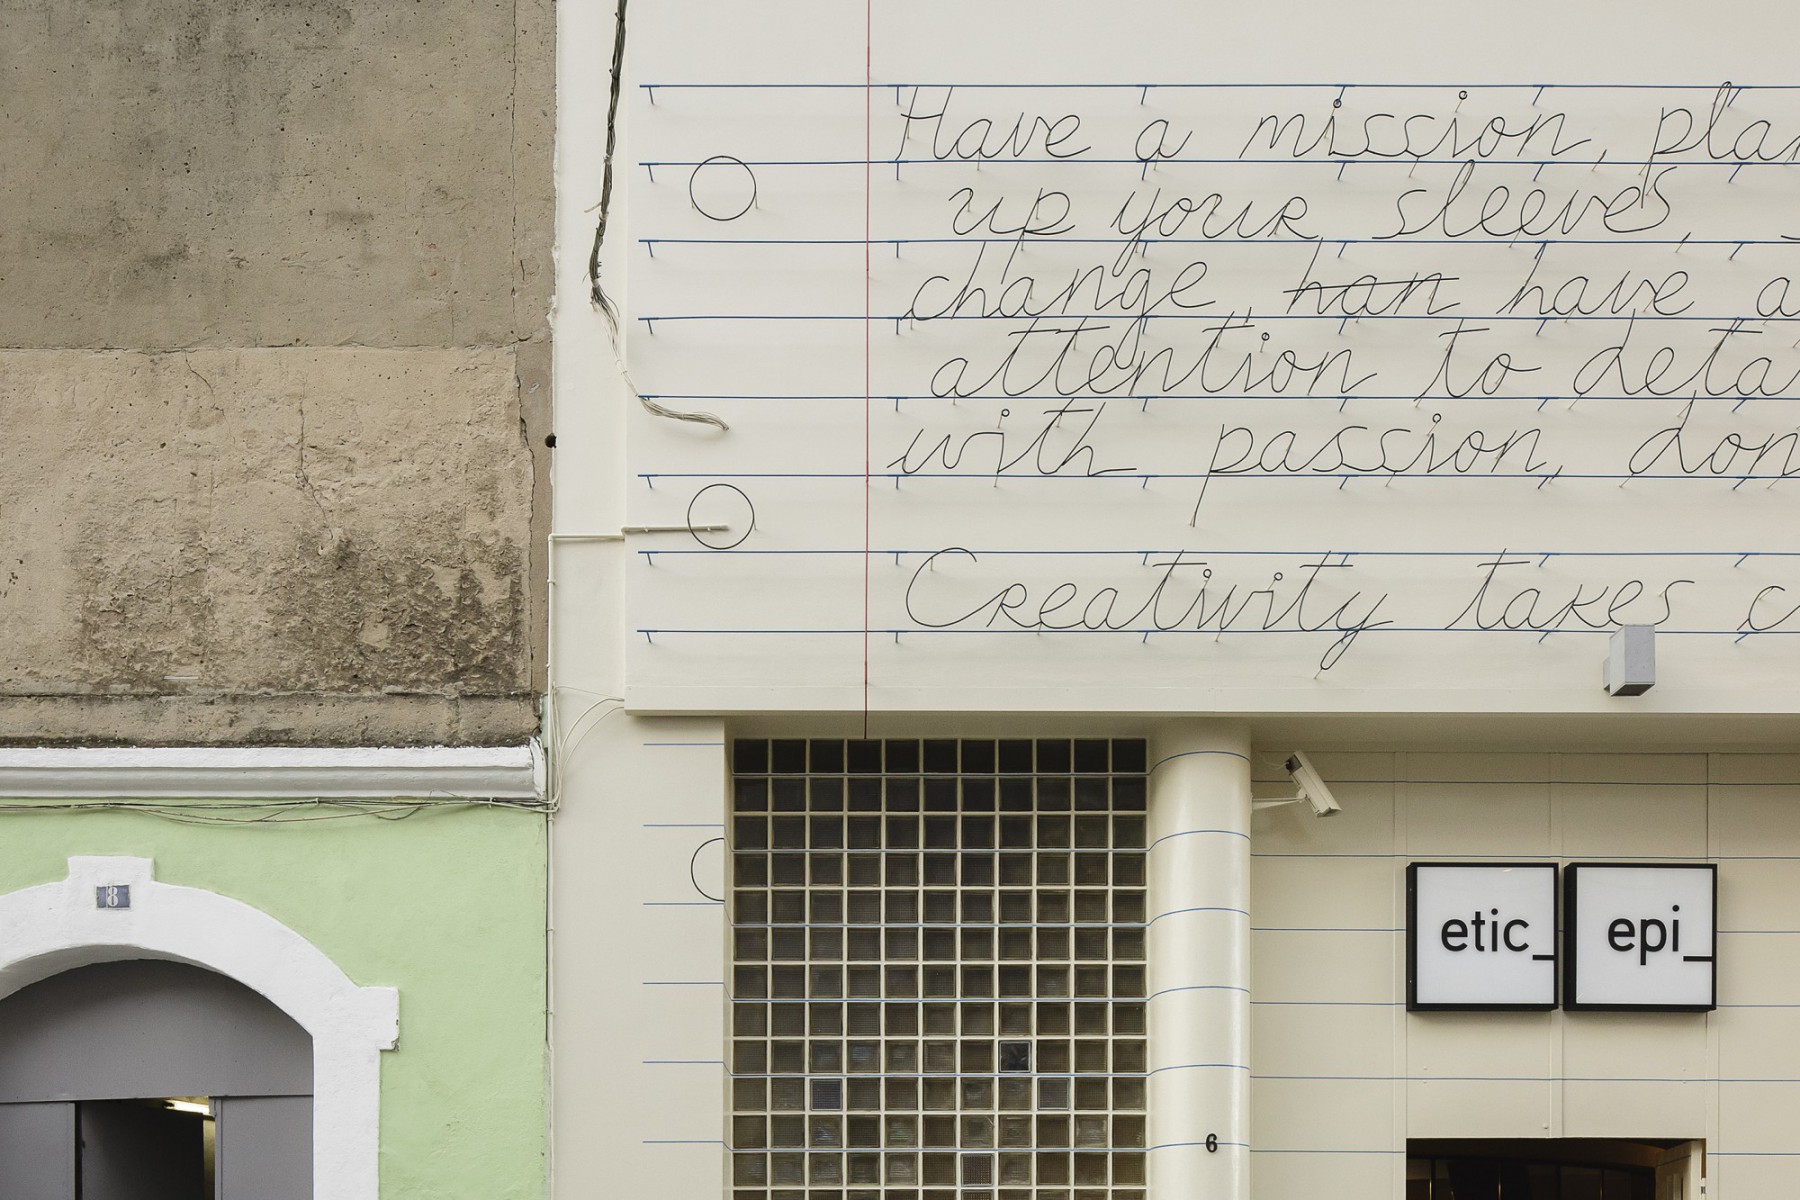 Have a mission, plan
up your sleeves,
change, han have a
attention to deta
with passion, don
Creativity takes c
8
etic_ epi_
6